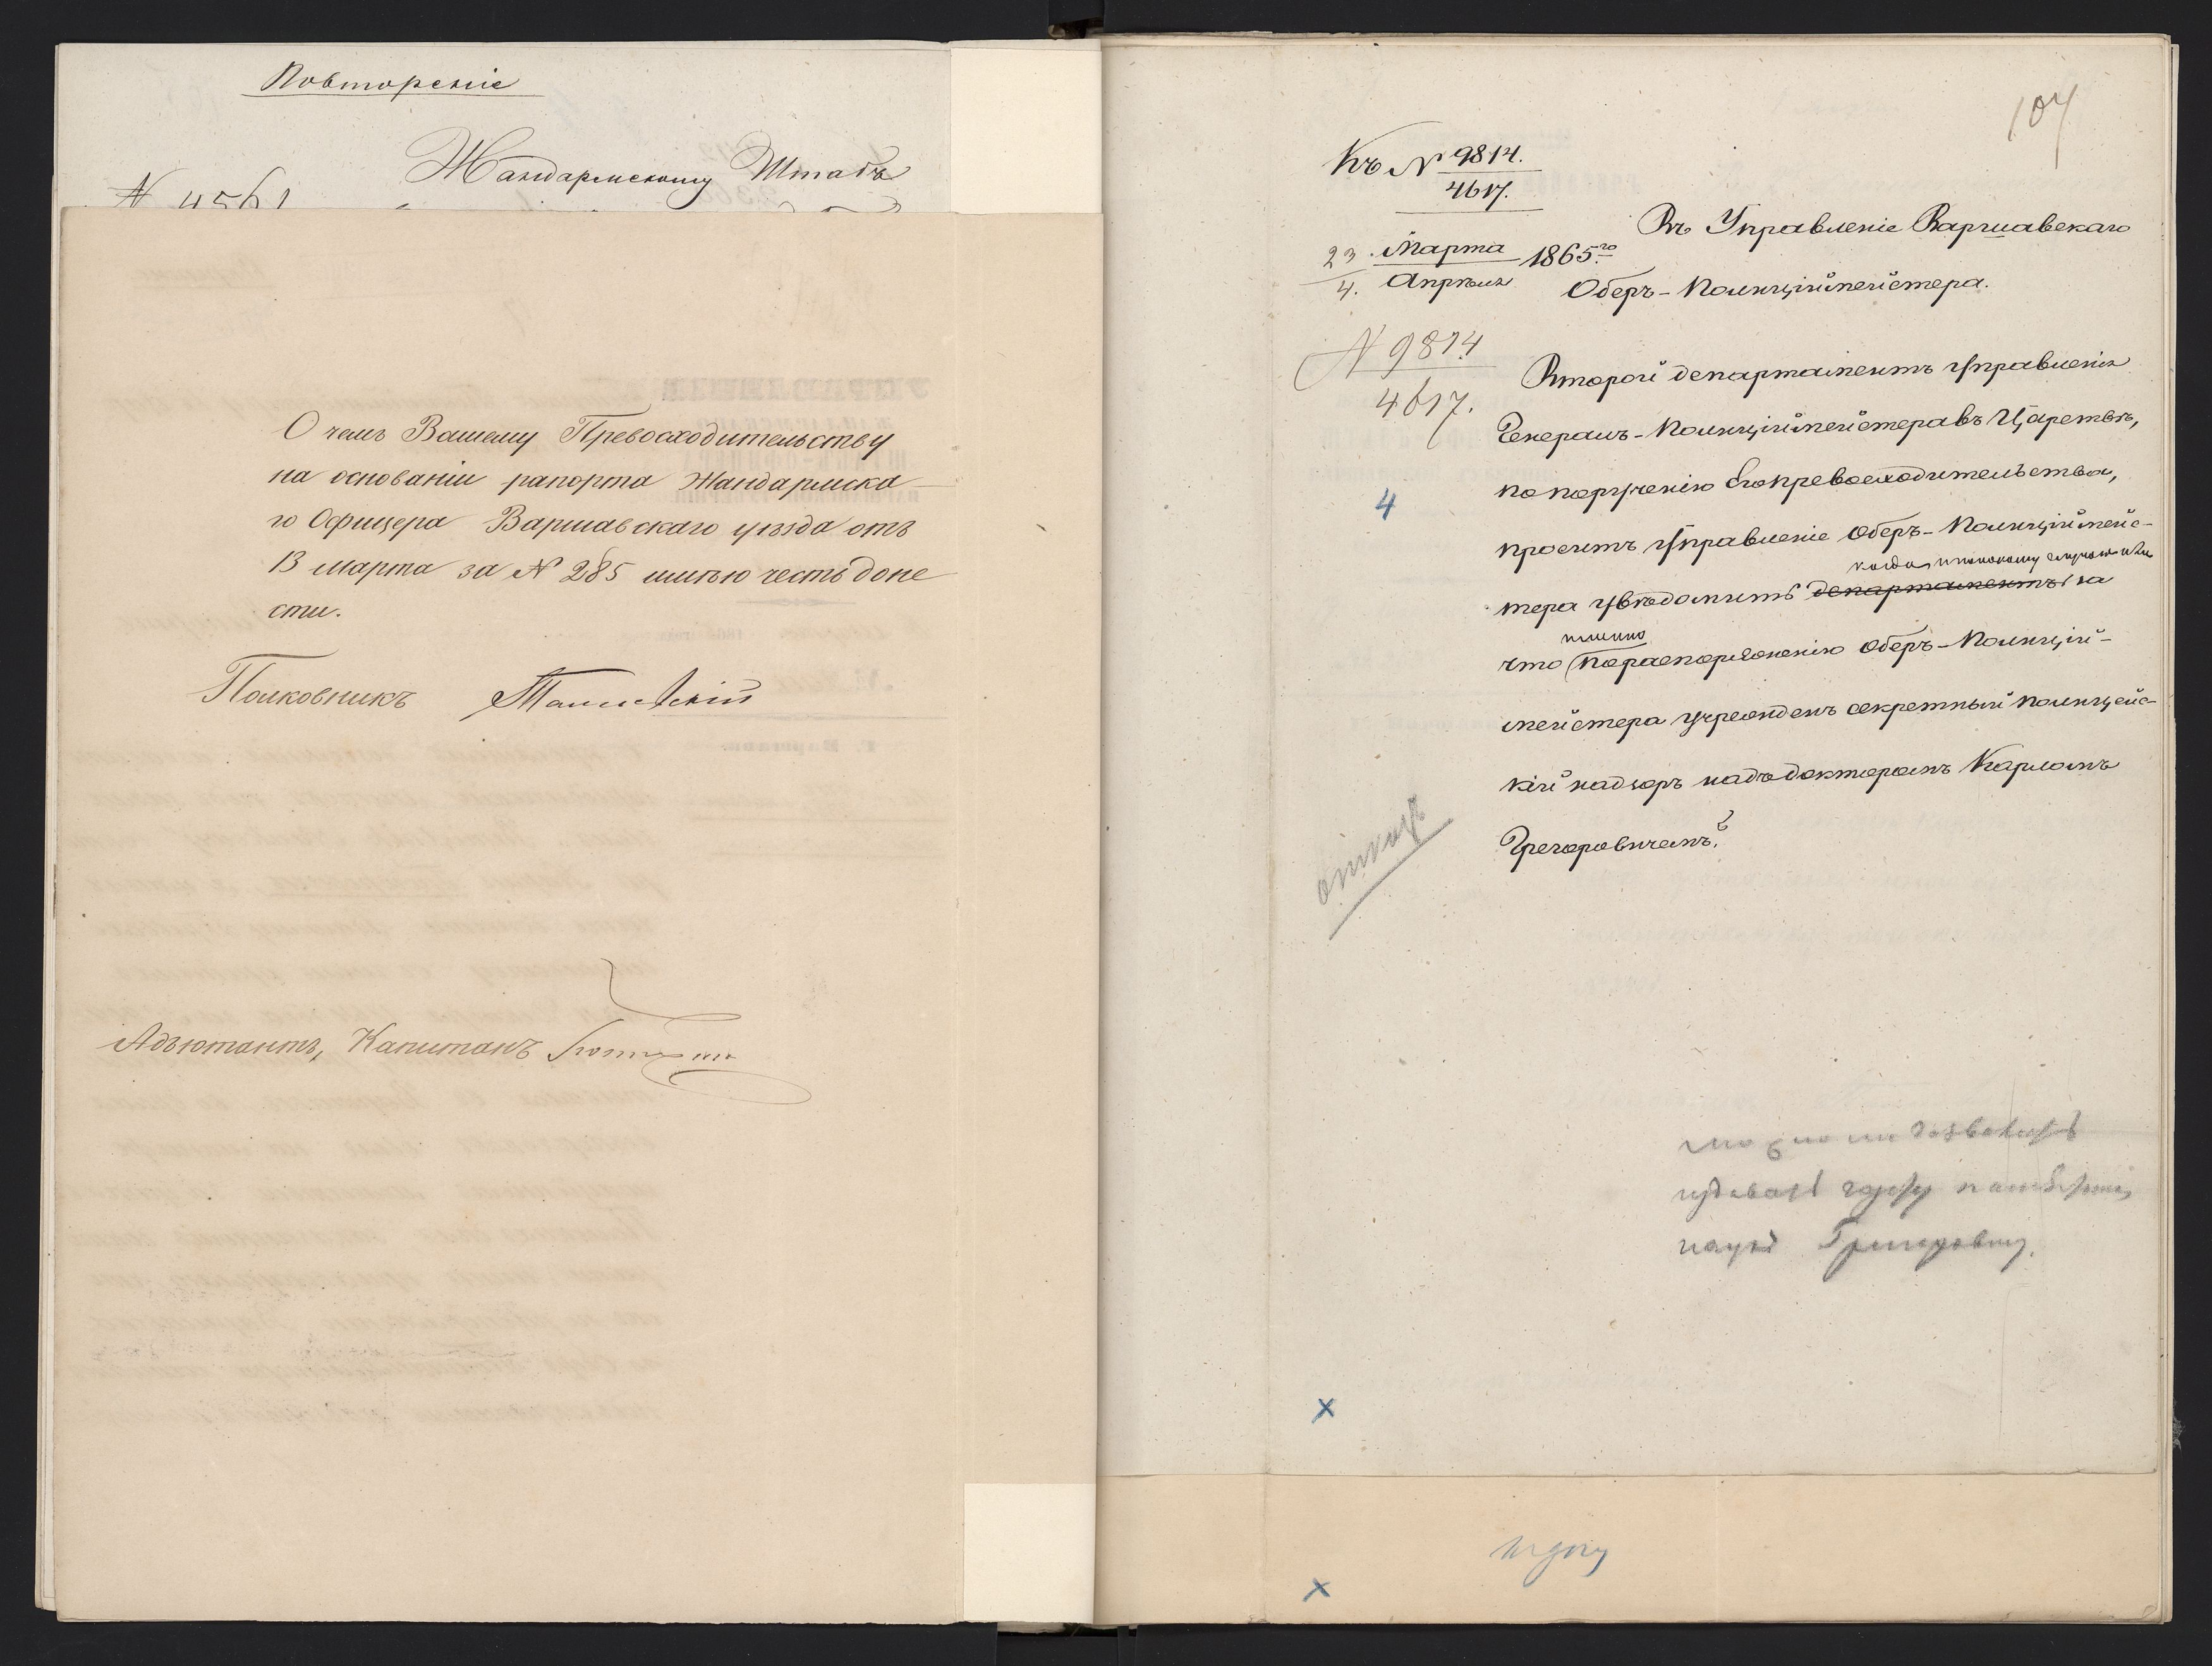 Повтореніе
Жандармскому Штабъ
№ 4561
О чемъ Вашему Превосходительству
на основаніи рапорта Жандармска-
го Офицера Варшавскаго уѣзда отъ
13 марта за № 285 имѣю честь доне
сти.
Полковникъ
Адъютантъ, Капитанъ
104
Къ № 9814.
4617.
23 Марта 1865го
4. Апрѣля
Въ Управленіе Варшавскаго
Оберъ-Полиціймейстера.
№ 9814
4617.
4
Второй департаментъ Управленія
Генералъ-Полиціймейстера въ Царствѣ,
по порученію Его превосходительства,
проситъ Управленіе Оберъ-Полиціймейс-
когда, по какому случаю и за
тера увѣдомить департаментъ за
именно
что по распоряженію Оберъ-Полицій-
мейстера учрежденъ секретный полицейс-
кій надзоръ надъ докторомъ Карломъ
Грегоровичемъ?
х
къ делу
х